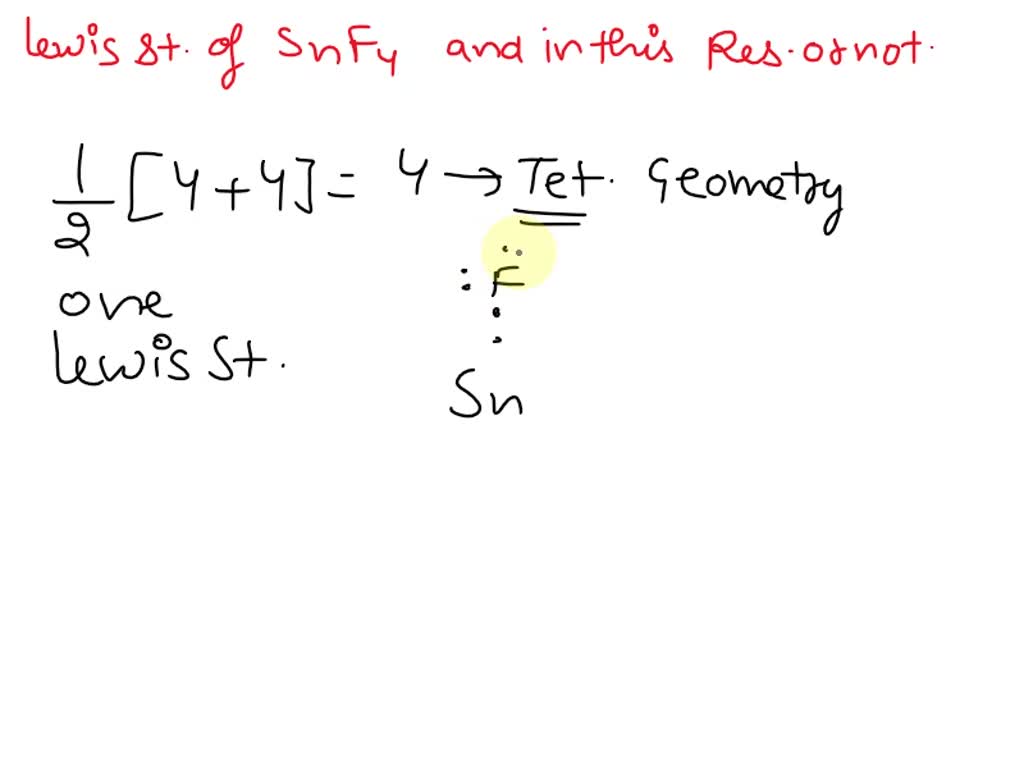 Lewis St. of SnF4 and in this Res. or not.
1/2 [4+4] = 4 → Tet. Geometry
one
Lewis St.
:F
Sn